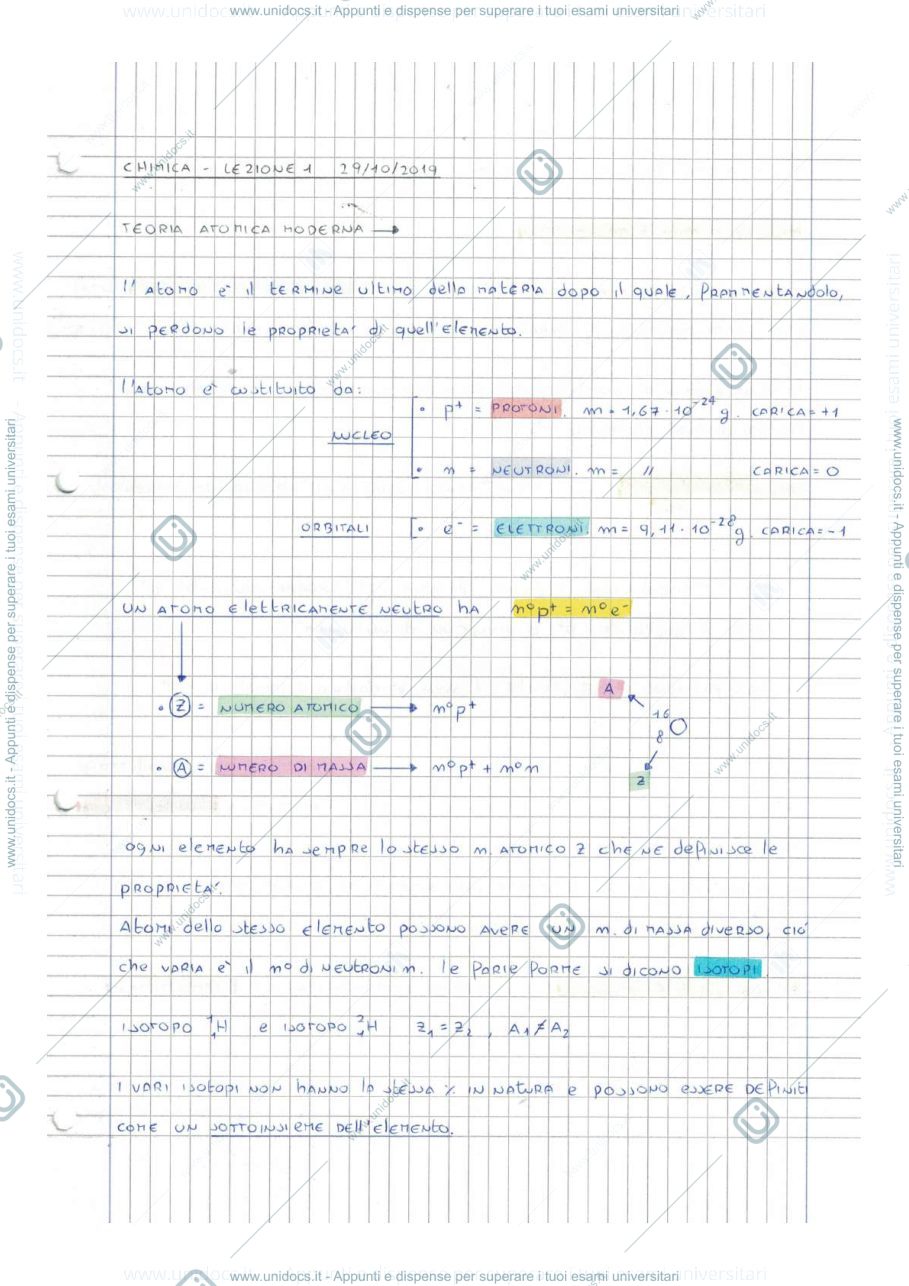 www.unidocs.it - Appunti e dispense per superare i tuoi esami universitari
CHIMICA - LEZIONE 1 29/10/2019
TEORIA ATOMICA MODERNA →
l'Atomo è il termine ultimo della materia dopo il quale, frammentandolo,
si perdono le proprietà di quell'elemento.
l'Atomo è costituito da:
• p⁺ = PROTONI. m = 1,67 · 10⁻²⁴ g. CARICA = +1
NUCLEO
• n = NEUTRONI. m = // CARICA = 0
ORBITALI • e⁻ = ELETTRONI. m = 9,11 · 10⁻²⁸ g. CARICA = -1
UN ATOMO elettricamente neutro ha n° p⁺ = n° e⁻
A
• Z = NUMERO ATOMICO → n° p⁺
16
8 O
• A = NUMERO DI MASSA → n° p⁺ + n° n
Z
ogni elemento ha sempre lo stesso n. atomico Z che ne definisce le
proprietà.
Atomi dello stesso elemento possono avere un n. di massa diverso, ciò
che varia è il n° di neutroni n. le varie forme si dicono ISOTOPI
isotopo ¹₁H e isotopo ²₁H Z₁ = Z₂ , A₁ ≠ A₂
I vari isotopi non hanno la stessa % in natura e possono essere definiti
come un sottoinsieme dell'elemento.
www.unidocs.it - Appunti e dispense per superare i tuoi esami universitari
www.unidocs.it - Appunti e dispense per superare i tuoi esami universitari
www.unidocs.it - Appunti e dispense per superare i tuoi esami universitari